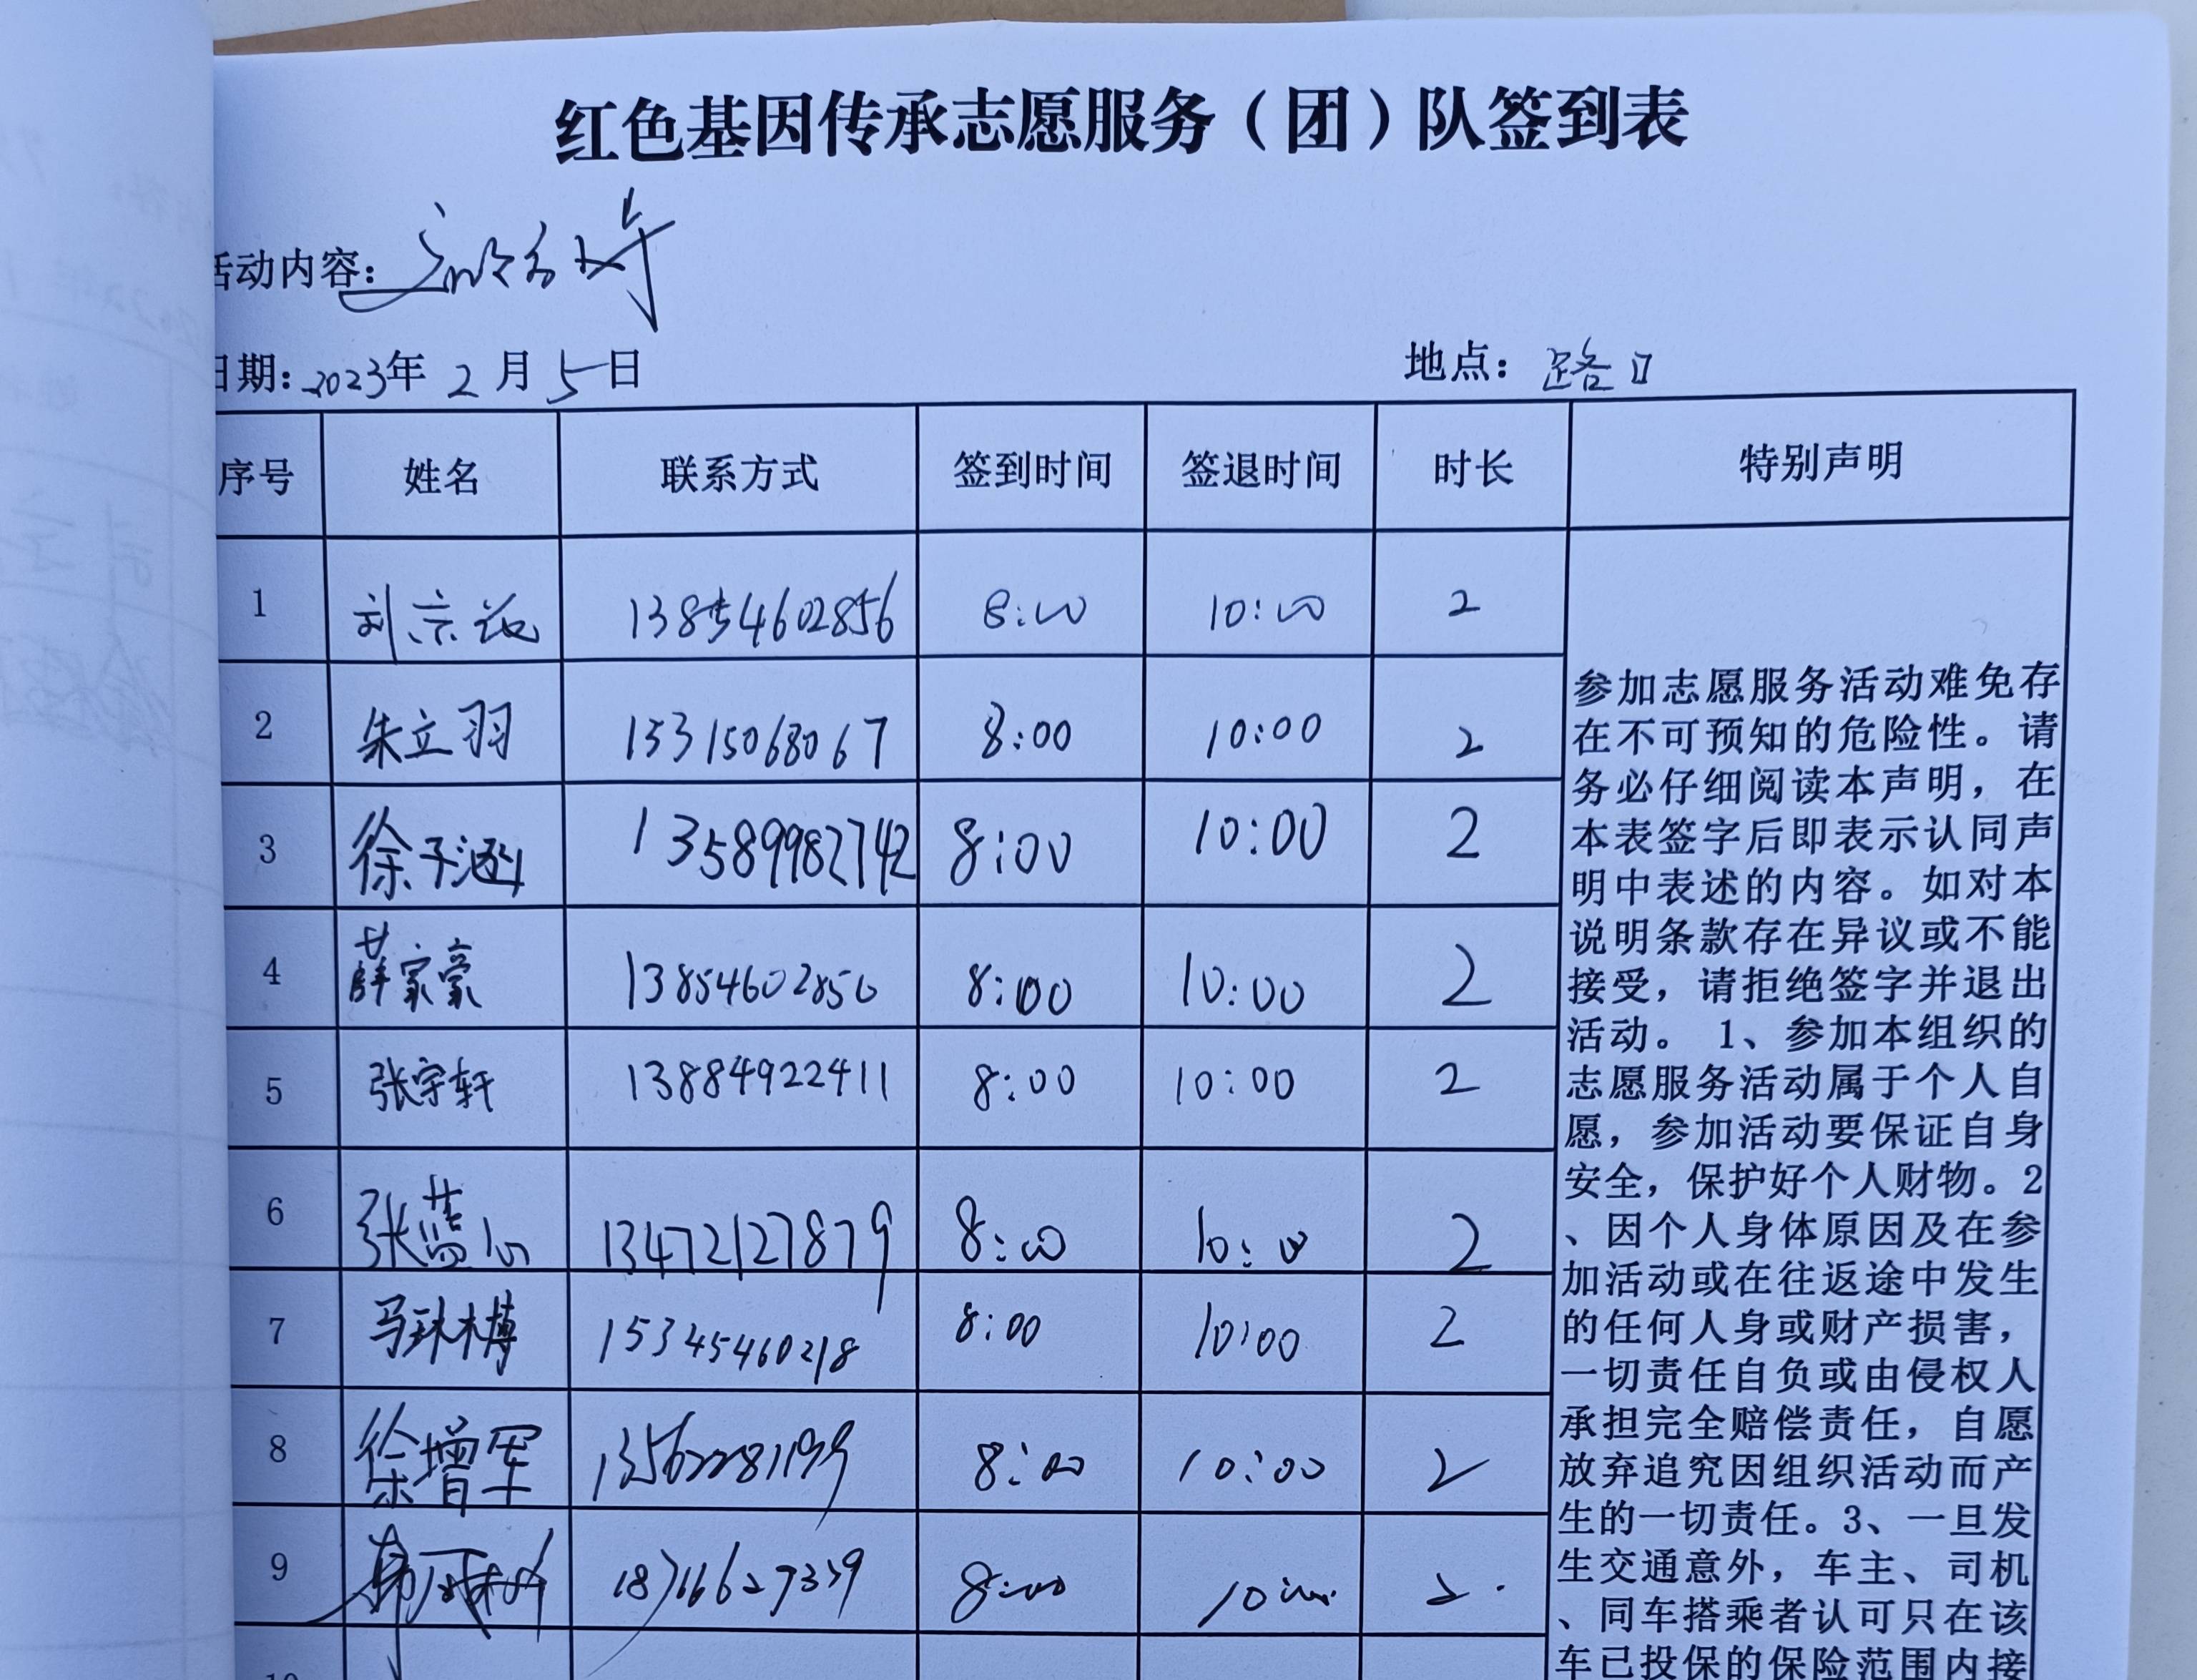 红色基因传承志愿服务（团）队签到表
活动内容：
日期：2023年 2 月 5 日 地点：路口
序号 姓名 联系方式 签到时间 签退时间 时长 特别声明
1 刘宗 13854602856 8:00 10:00 2
2 朱立羽 15315068067 8:00 10:00 2
3 徐子涵 13589982742 8:00 10:00 2
4 薛家豪 13854602850 8:00 10:00 2
5 张宇轩 13884922411 8:00 10:00 2
6 张蓝心 13472127879 8:00 10:00 2
7 马琳博 15345460218 8:00 10:00 2
8 徐增军 13562281199 8:00 10:00 2
9 18716627339 8:00 10:00 2
10
参加志愿服务活动难免存
在不可预知的危险性。请
务必仔细阅读本声明，在
本表签字后即表示认同声
明中表述的内容。如对本
说明条款存在异议或不能
接受，请拒绝签字并退出
活动。 1、参加本组织的
志愿服务活动属于个人自
愿，参加活动要保证自身
安全，保护好个人财物。2
、因个人身体原因及在参
加活动或在往返途中发生
的任何人身或财产损害，
一切责任自负或由侵权人
承担完全赔偿责任，自愿
放弃追究因组织活动而产
生的一切责任。3、一旦发
生交通意外，车主、司机
、同车搭乘者认可只在该
车已投保的保险范围内接